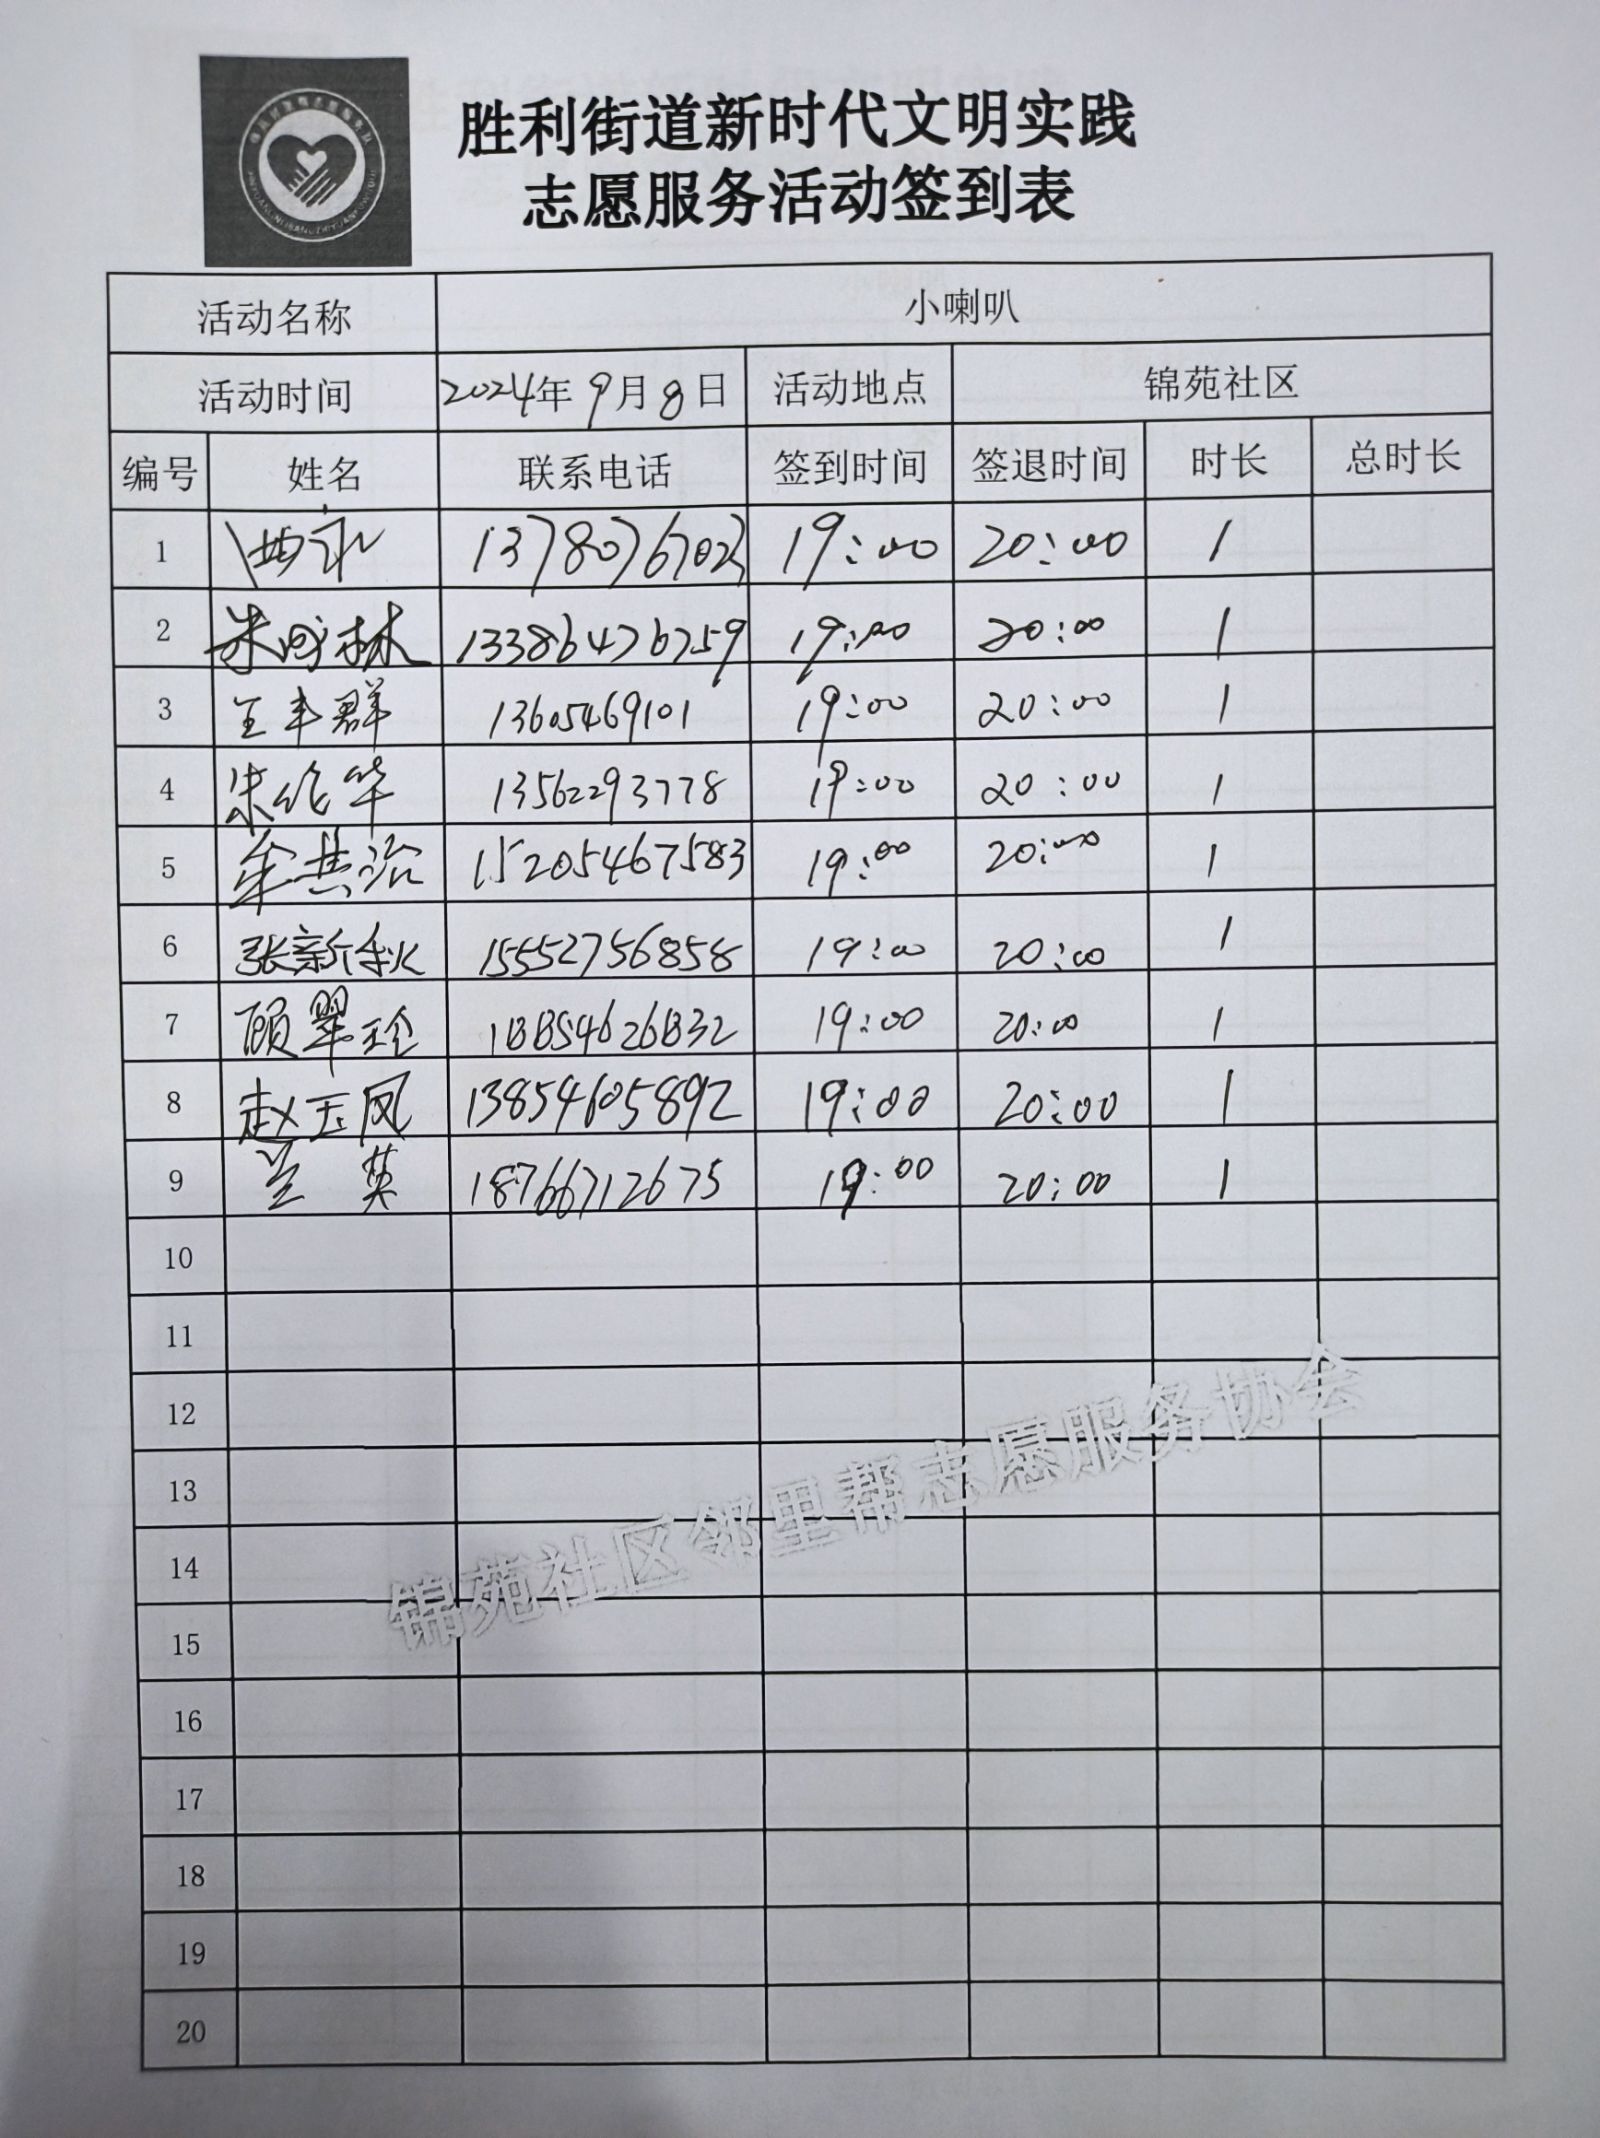 胜利街道新时代文明实践
志愿服务活动签到表
活动名称 小喇叭
活动时间 2024年9月8日 活动地点 锦苑社区
编号 姓名 联系电话 签到时间 签退时间 时长 总时长
1 19:00 20:00 1
2 13386476759 19:00 20:00 1
3 王丰群 13605469101 19:00 20:00 1
4 朱作华 13562293778 19:00 20:00 1
5 牟其治 15205467583 19:00 20:00 1
6 张新秋 15552756858 19:00 20:00 1
7 顾翠珍 18854626832 19:00 20:00 1
8 赵玉凤 13854605892 19:00 20:00 1
9 兰英 18766712675 19:00 20:00 1
10
11
12
13
14
15
16
17
18
19
20
锦苑社区邻里帮志愿服务协会